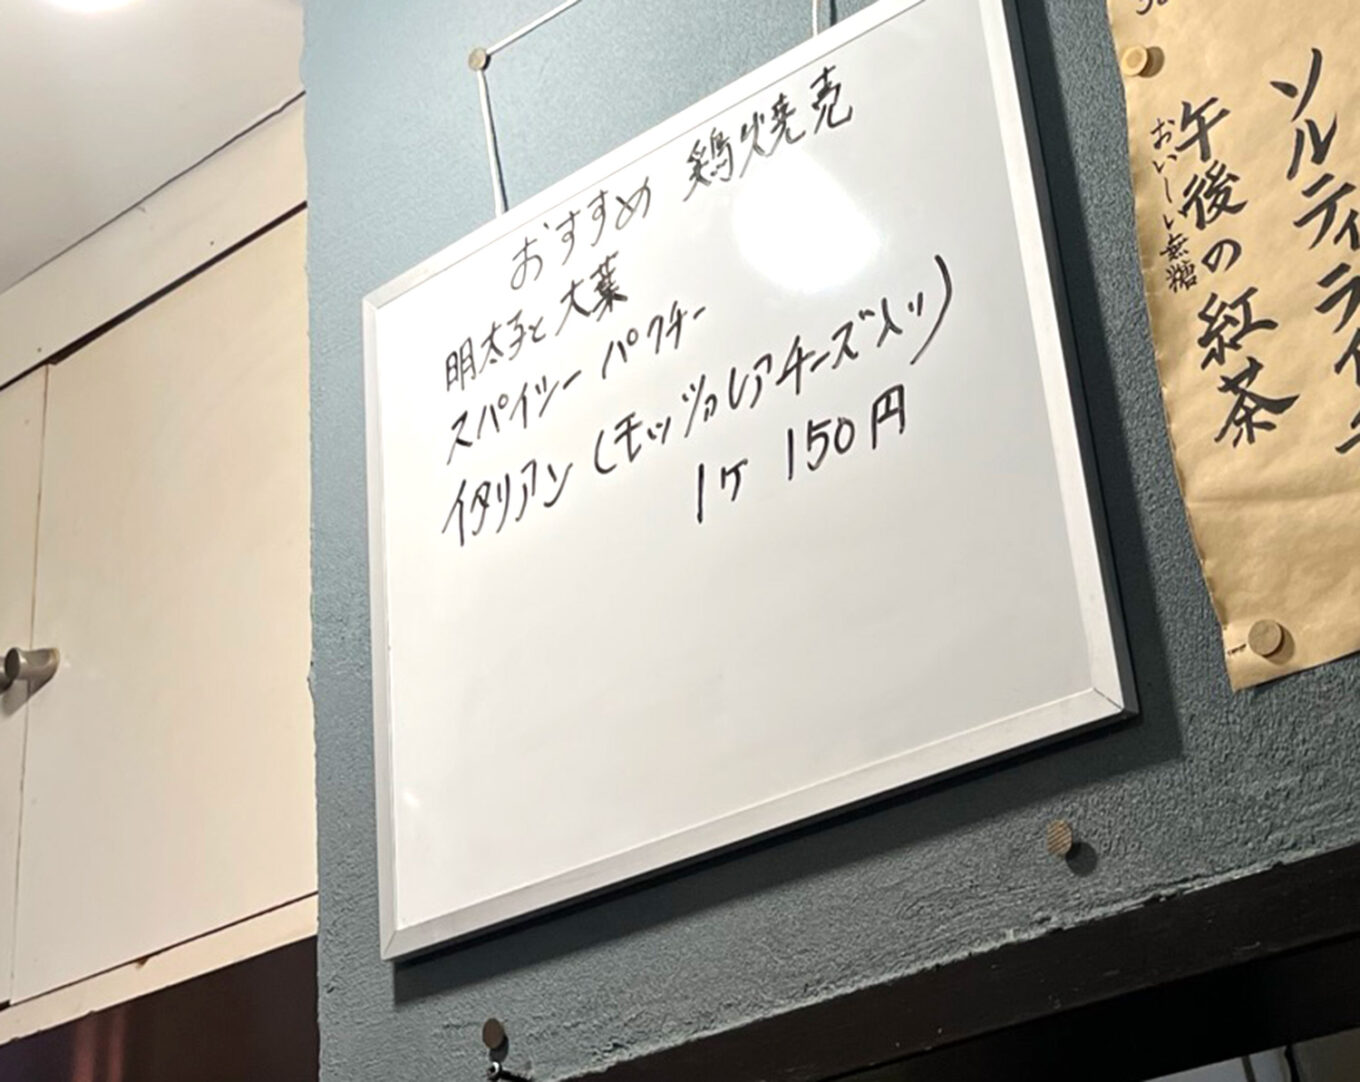 おすすめ 鶏焼売
明太子と大葉
スパイシーパクチー
イタリアン(モッツァレアチーズ入り)
1ケ 150円
ソルティライ
午後の紅茶
おいしい無糖